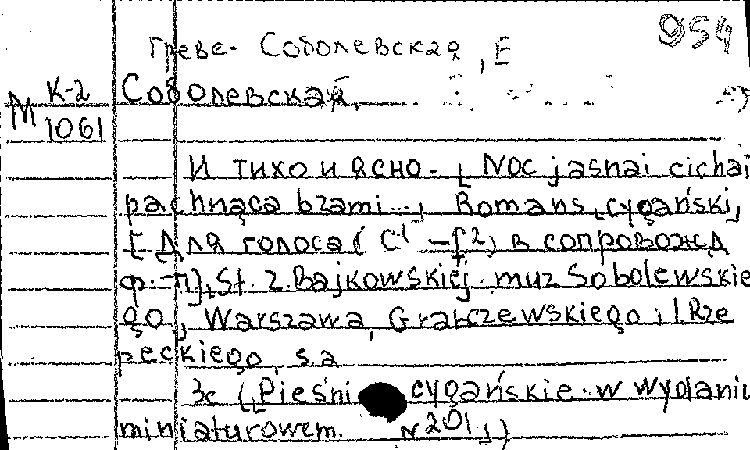 954
Греве- Соболевская, Е
М К-2 Соболевская,
1061
И тихо и ясно. [Noc jasna i cicha i
pachnąca bzami..., Romans cygański,
[Для голоса (c¹ -f²) в сопровожд
ф.-п], Sł. Z. Bajkowskiej. muz Sobolewskie
go, Warszawa, Grabczewskiego i I. Rze
peckiego, s.a
3с (Pieśni cygańskie w wydaniu
miniaturowem. N 201,)